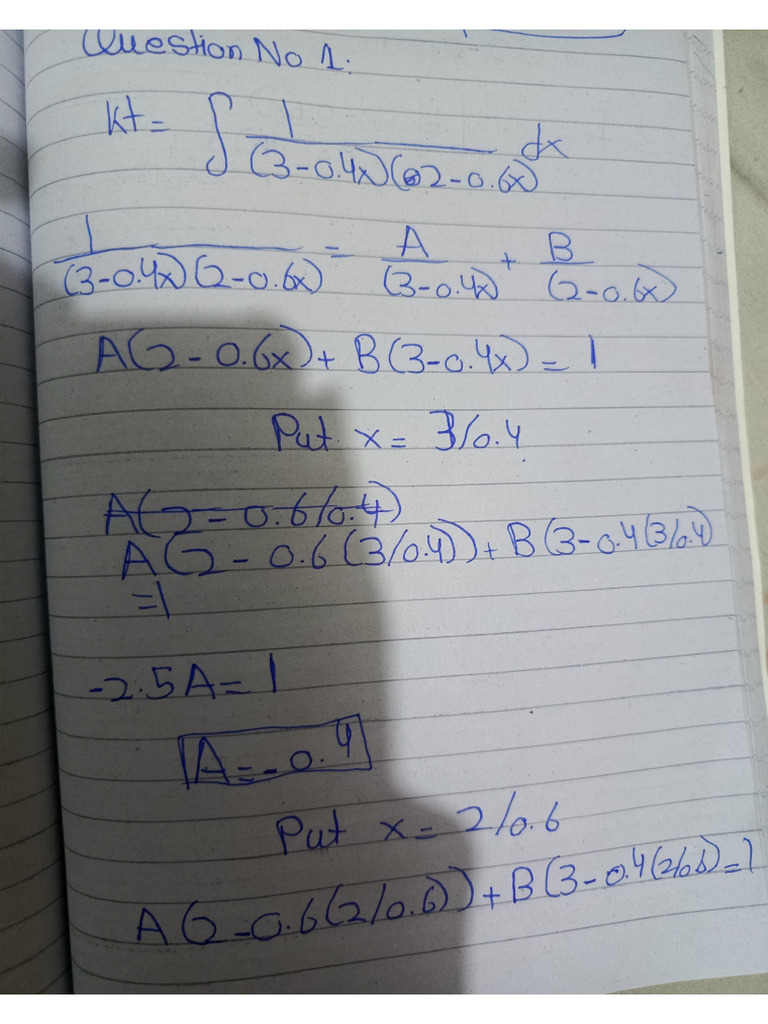 Question No 1:
kt = ∫ 1 / (3-0.4x)(2-0.6x) dx
1 / (3-0.4x)(2-0.6x) = A / (3-0.4x) + B / (2-0.6x)
A(2-0.6x) + B(3-0.4x) = 1
Put x = 3/0.4
A(2-0.6/0.4)
A(2-0.6(3/0.4)) + B(3-0.4(3/0.4)
=1
-2.5A = 1
A = -0.4
Put x = 2/0.6
A(2-0.6(2/0.6)) + B(3-0.4(2/0.6) = 1